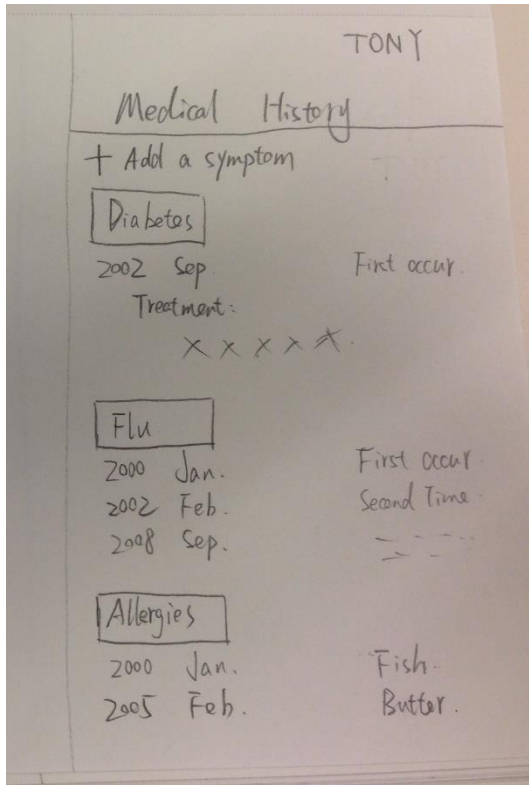 TONY
Medical History
+ Add a symptom
Diabetes
2002 Sep. First occur.
Treatment:
x x x x x.
Flu
2000 Jan. First occur.
2002 Feb. Second Time.
2008 Sep.
Allergies
2000 Jan. Fish.
2005 Feb. Butter.